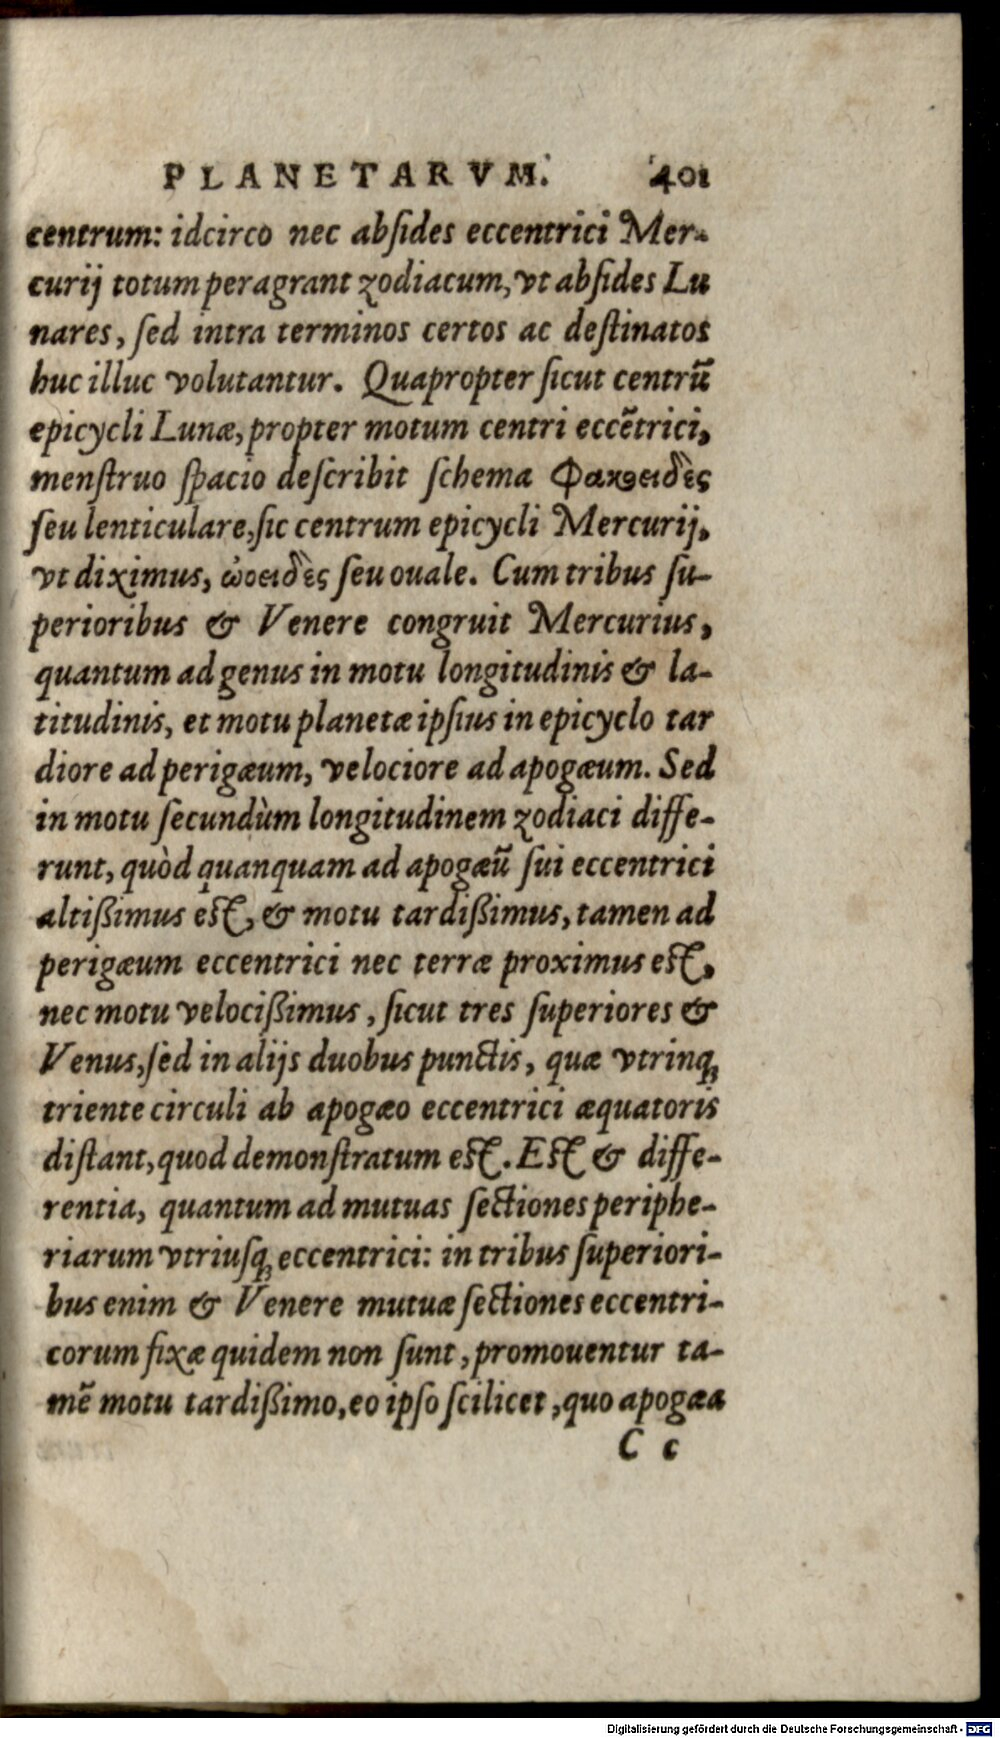 PLANETARVM. 401
centrum: idcirco nec abſides eccentrici Mer-
curij totum peragrant zodiacum, vt abſides Lu
nares, ſed intra terminos certos ac deſtinatos
huc illuc volutantur. Quapropter ſicut centrũ
epicycli Lunæ, propter motum centri eccẽtrici,
menſtruo ſpacio deſcribit ſchema Φακοειδὲς
ſeu lenticulare, ſic centrum epicycli Mercurij,
vt diximus, ὠοειδὲς ſeu ouale. Cum tribus ſu-
perioribus & Venere congruit Mercurius,
quantum ad genus in motu longitudinis & la-
titudinis, et motu planetæ ipſius in epicyclo tar
diore ad perigæum, velociore ad apogæum. Sed
in motu ſecundùm longitudinem zodiaci diffe-
runt, quòd quanquam ad apogæũ ſui eccentrici
altißimus eſt, & motu tardißimus, tamen ad
perigæum eccentrici nec terræ proximus eſt,
nec motu velocißimus, ſicut tres ſuperiores &
Venus, ſed in alijs duobus punctis, quæ vtrinq;
triente circuli ab apogæo eccentrici æquatoris
diſtant, quod demonſtratum eſt. Eſt & diffe-
rentia, quantum ad mutuas ſectiones periphe-
riarum vtriuſq; eccentrici: in tribus ſuperiori-
bus enim & Venere mutuæ ſectiones eccentri-
corum fixæ quidem non ſunt, promouentur ta-
mẽ motu tardißimo, eo ipſo ſcilicet, quo apogæa
C c
Digitalisierung gefördert durch die Deutsche Forschungsgemeinschaft - DFG